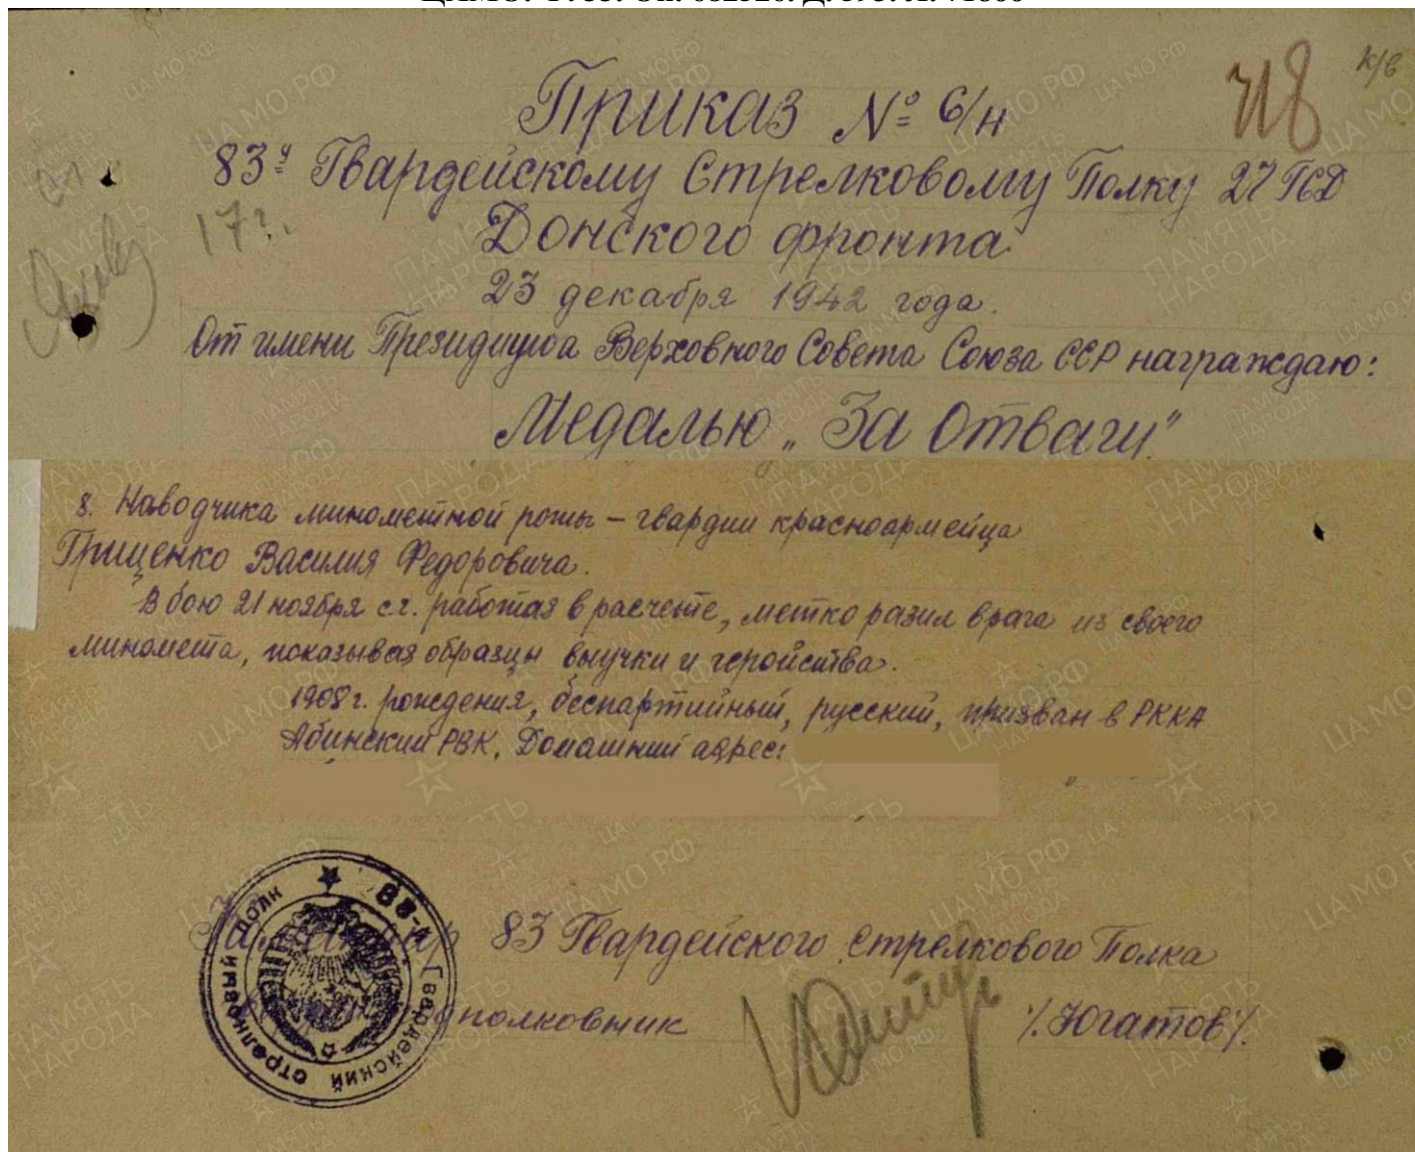 Приказ № б/н
83й Гвардейскому Стрелковому Полку 27 ГСД
Донского фронта
23 декабря 1942 года.
От имени Президиума Верховного Совета Союза ССР награждаю:
Медалью „За Отвагу"
8. Наводчика минометной роты – гвардии красноармейца
Гриценко Василия Федоровича.
В бою 21 ноября с.г. работая в расчете, метко разил врага из своего
миномета, показывая образцы выучки и геройства.
1908 г. рождения, беспартийный, русский, призван в РККА
Абинский РВК. Домашний адрес:
83 Гвардейского Стрелкового Полка
дполковник /Югатов/.
83-й Гвардейский стрелковый полк
718
к/в
17г.
ЦАМО РФ
ПАМЯТЬ НАРОДА